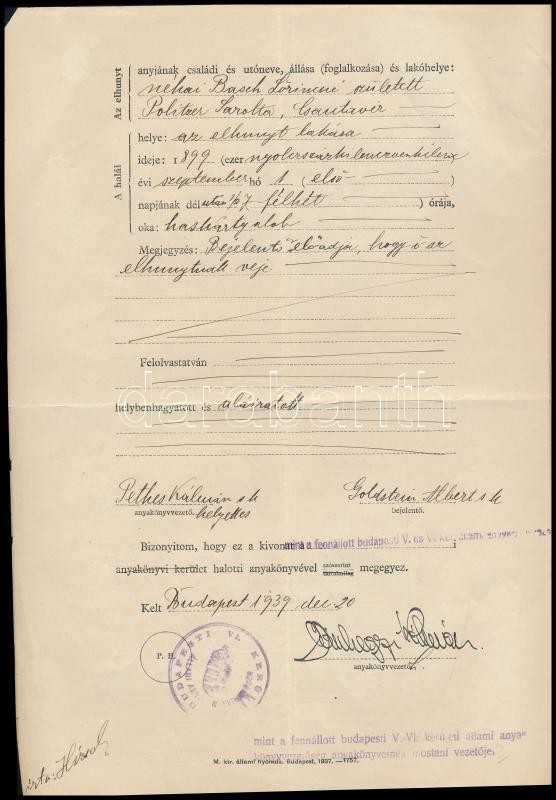 Az elhunyt
anyjának családi és utóneve, állása (foglalkozása) és lakóhelye:
néhai Basch Lőrincné született
Politzer Sarolta, Csantavér
A halál
helye: az elhunyt lakása
ideje: 1899 (ezernyolcszázkilencvenkilenc
évi szeptember hó 1 (első )
napjának délután 1/2 7 félhét ) órája,
oka: hashártyalob
Megjegyzés: Bejelentő előadja, hogy ő az
elhunytnak veje
Felolvastatván
helybenhagyatott és aláiratott
darabanth
Pethes Kálmán s k Goldstein Albert s k
anyakönyvvezető. helyettes bejelentő.
Bizonyitom, hogy ez a kivonat a mint a fennállott budapesti V. és VI. ker. i
anyakönyvi kerület halotti anyakönyvével szószerint tartalmilag megegyez.
Kelt Budapest 1939 dec. 20
P. H.
BUDAPESTI VI. KERÜL
Kálmán
anyakönyvvezető.
mint a fennállott budapesti V.-VI. kerületi állami anya-
könyvvezetőség anyakönyveinek mostani vezetője.
M. kir. állami nyomda. Budapest, 1937. —1757.
írta: Hirsch